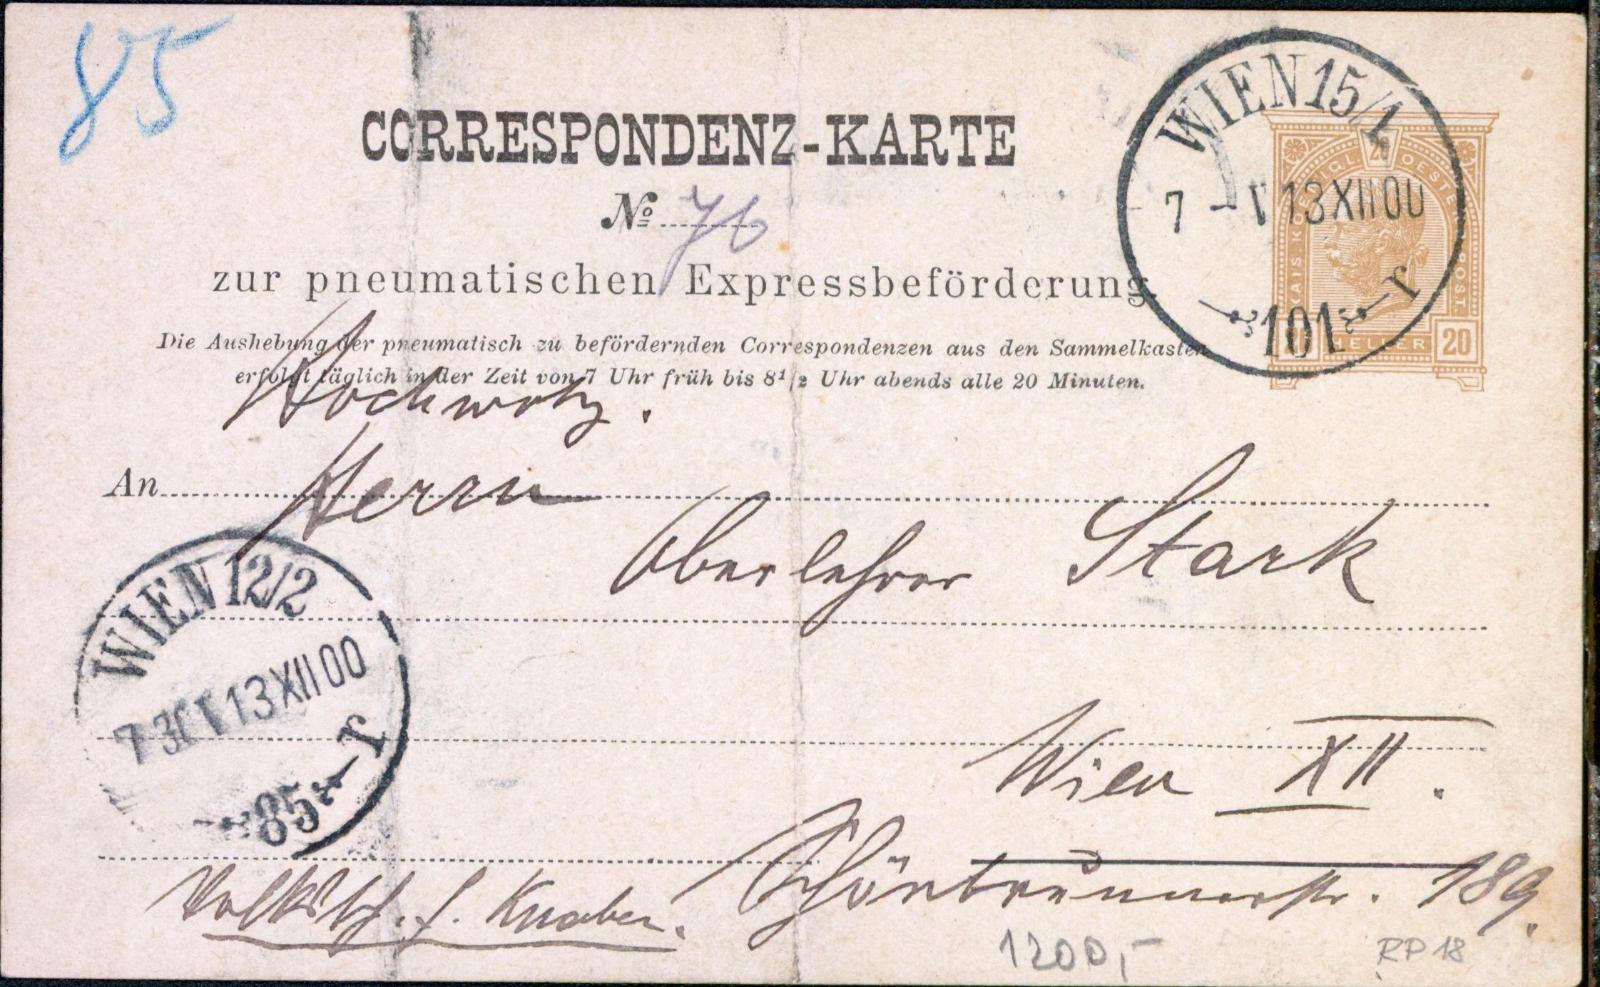 85
CORRESPONDENZ-KARTE
No 76
zur pneumatischen Expressbeförderung.
Die Aushebung der pneumatisch zu befördernden Correspondenzen aus den Sammelkasten
erfolgt täglich in der Zeit von 7 Uhr früh bis 8 1/2 Uhr abends alle 20 Minuten.
WIEN 15/1
7 - V 13 XII 00
101
KAIS. KOENIGL. OESTERR. POST
20 HELLER 20
An Herrn
Oberlehrer Stark
WIEN 12/2
7 30 V 13 XII 00
85
Wien XII.
Schönbrunnerstr. 189.
Volkssch. f. Knaben.
1200,-
RP 18